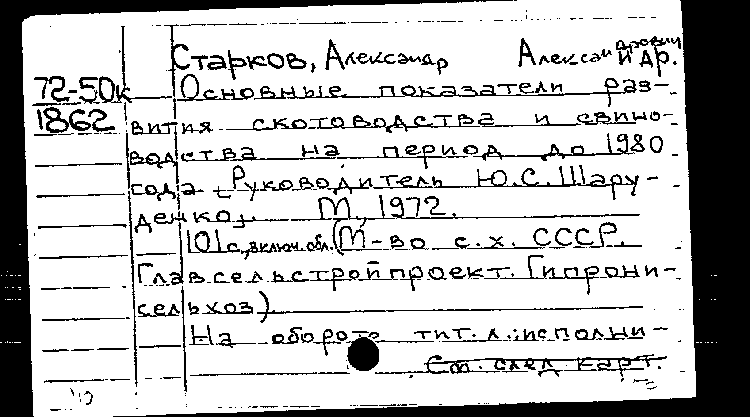 Старков, Александр Александрович и др.
72-50к Основные показатели раз-
1862 вития скотоводства и свино-
водства на период до 1980
года. [Руководитель Ю.С. Шару-
денко]. М., 1972.
101 с., включ. обл. (М-во с.х. СССР.
Главсельстройпроект. Гипрони-
сельхоз).
На обороте тит. л.: исполни-
См. след карт.